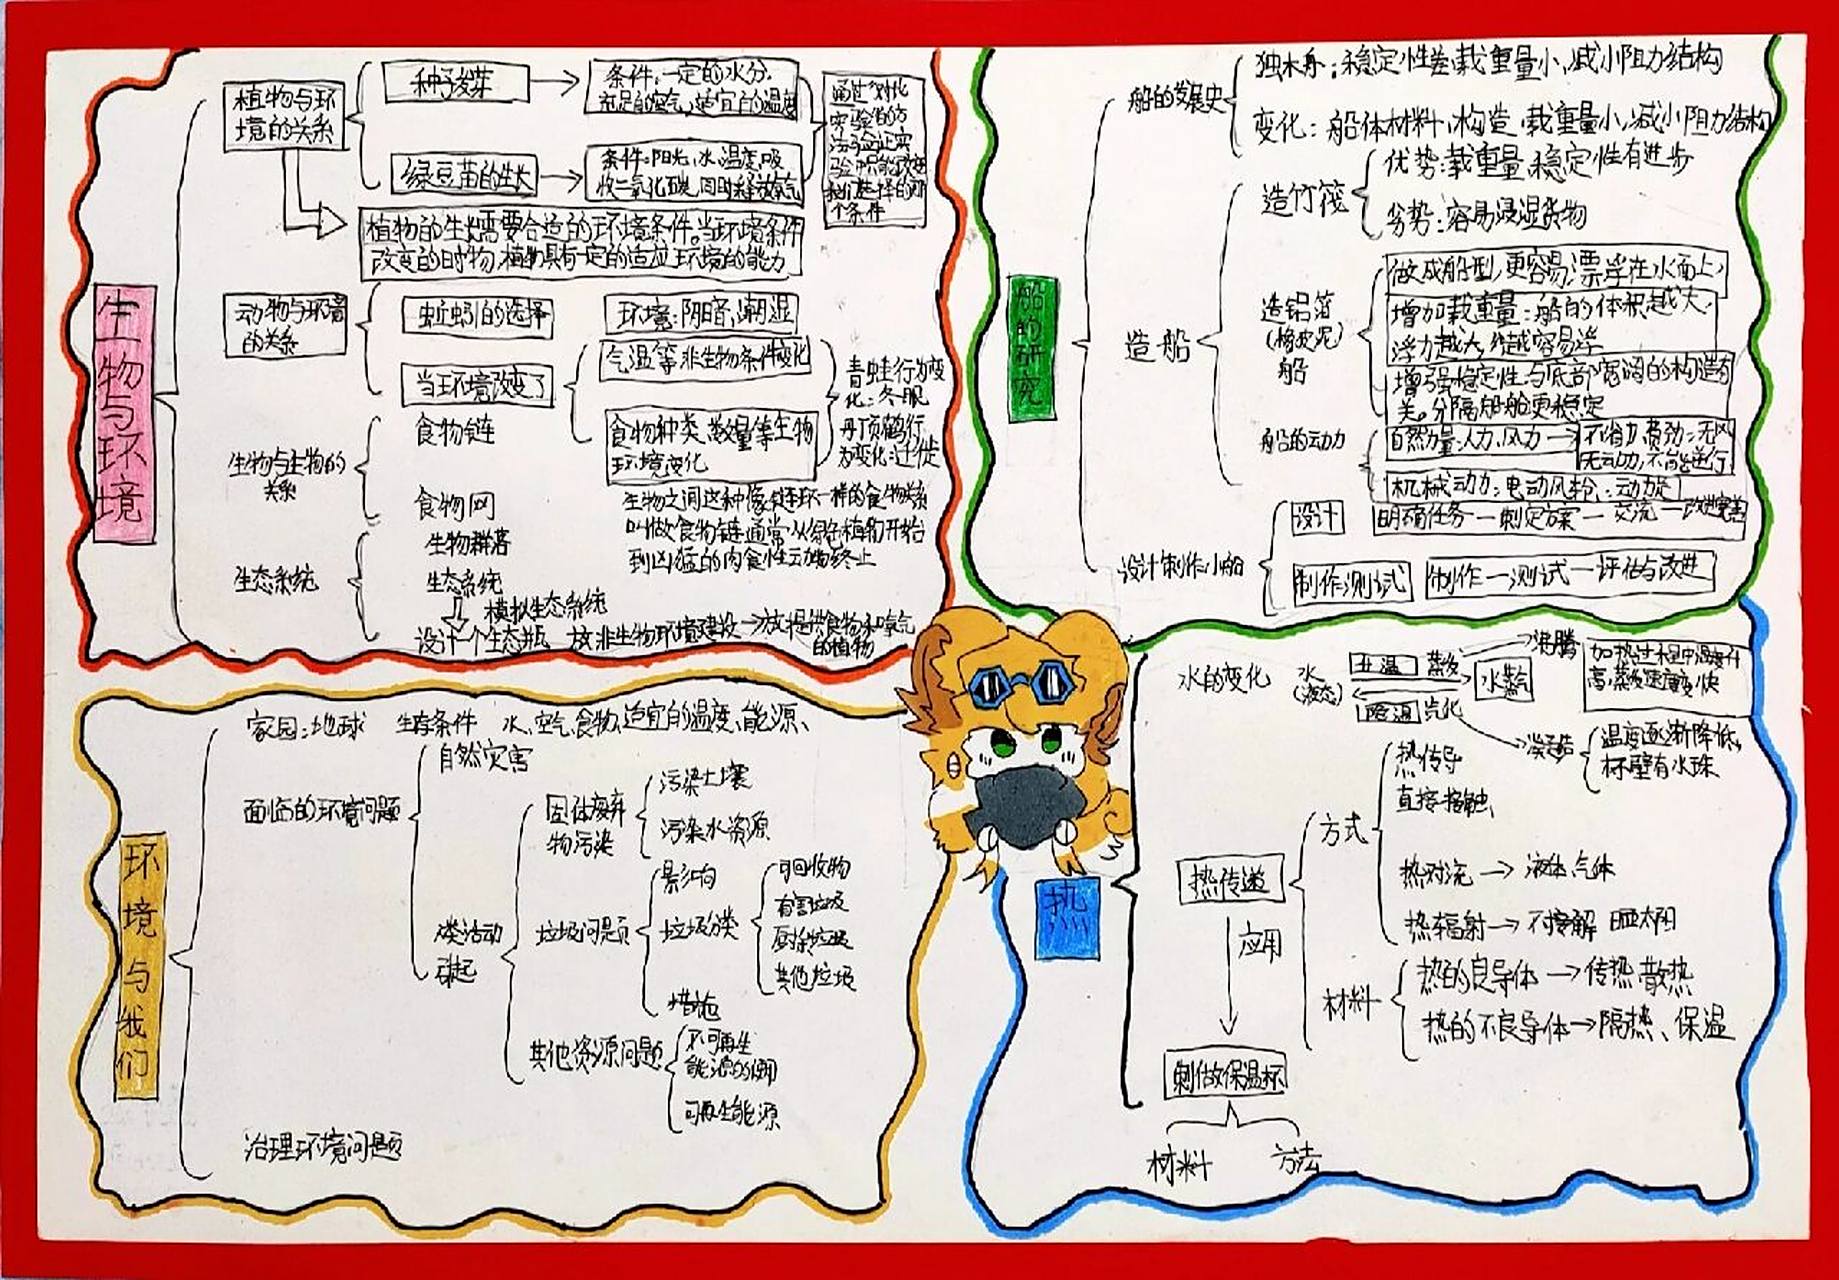 生物与环境
植物与环
境的关系
种子发芽
条件:一定的水分,
充足的空气,适宜的温度
绿豆苗的生长
条件:阳光,水,温度,吸
收二氧化碳,同时释放氧气
通过对比
实验的方
法
个条件
植物的生长需要合适的环境条件。当环境条件
改变的时物,植物具有一定的适应环境的能力
动物与环境
的关系
蚯蚓的选择
环境:阴暗,潮湿
当环境改变了
气温等非生物条件变化
食物种类、数量等生物
环境变化
青蛙行为变
化:冬眠
丹顶鹤行
为变化:迁徙
生物与生物的
关系
食物链
食物网
生物之间这种像链环一样的食物关系
叫做食物链通常从绿色植物开始
到凶猛的肉食性动物终止
生态系统
生物群落
生态系统
模拟生态系统
设计一个生态瓶
放非生物环境建设→放提供食物和氧气
的植物
船的研究
船的发展史
独木舟:稳定性差,载重量小,减小阻力结构
变化:船体材料,构造,载重量小,减小阻力结构
造船
造竹筏
优势:载重量,稳定性有进步
劣势:容易浸湿货物
造铝箔
(橡皮泥)
船
做成船型,更容易漂浮在水面上,
增加载重量:船的体积越大,
浮力越大,越容易浮
增强稳定性与底部宽阔的构造有
关。分隔船舱更稳定
船的动力
自然力量:人力,风力→
不省力,费劲;无风
无动力,不能逆行
机械动力:电动风轮,
设计制作小船
设计
明确任务—制定方案—交流—改进完善
制作测试
制作—测试—评估与改进
环境与我们
家园:地球 生存条件 水、空气、食物、适宜的温度、能源、
面临的环境问题
自然灾害
人类活动
引起
固体废弃
物污染
污染土壤
污染水资源
垃圾问题
影响
垃圾分类
可回收物
有害垃圾
厨余垃圾
其他垃圾
措施
其他资源问题
不可再生
能源的使用
可再生能源
治理环境问题
热
水的变化
水
(液态)
升温
蒸发
降温
汽化
水蒸气
沸腾
加热过程中温度升
高,蒸发速度变快
凝结
温度逐渐降低,
杯壁有水珠
热传递
方式
热传导
直接接触
热对流→液体、气体
热辐射→不接触
材料
热的良导体→传热、散热
热的不良导体→隔热、保温
应用
制做保温杯
材料
方法